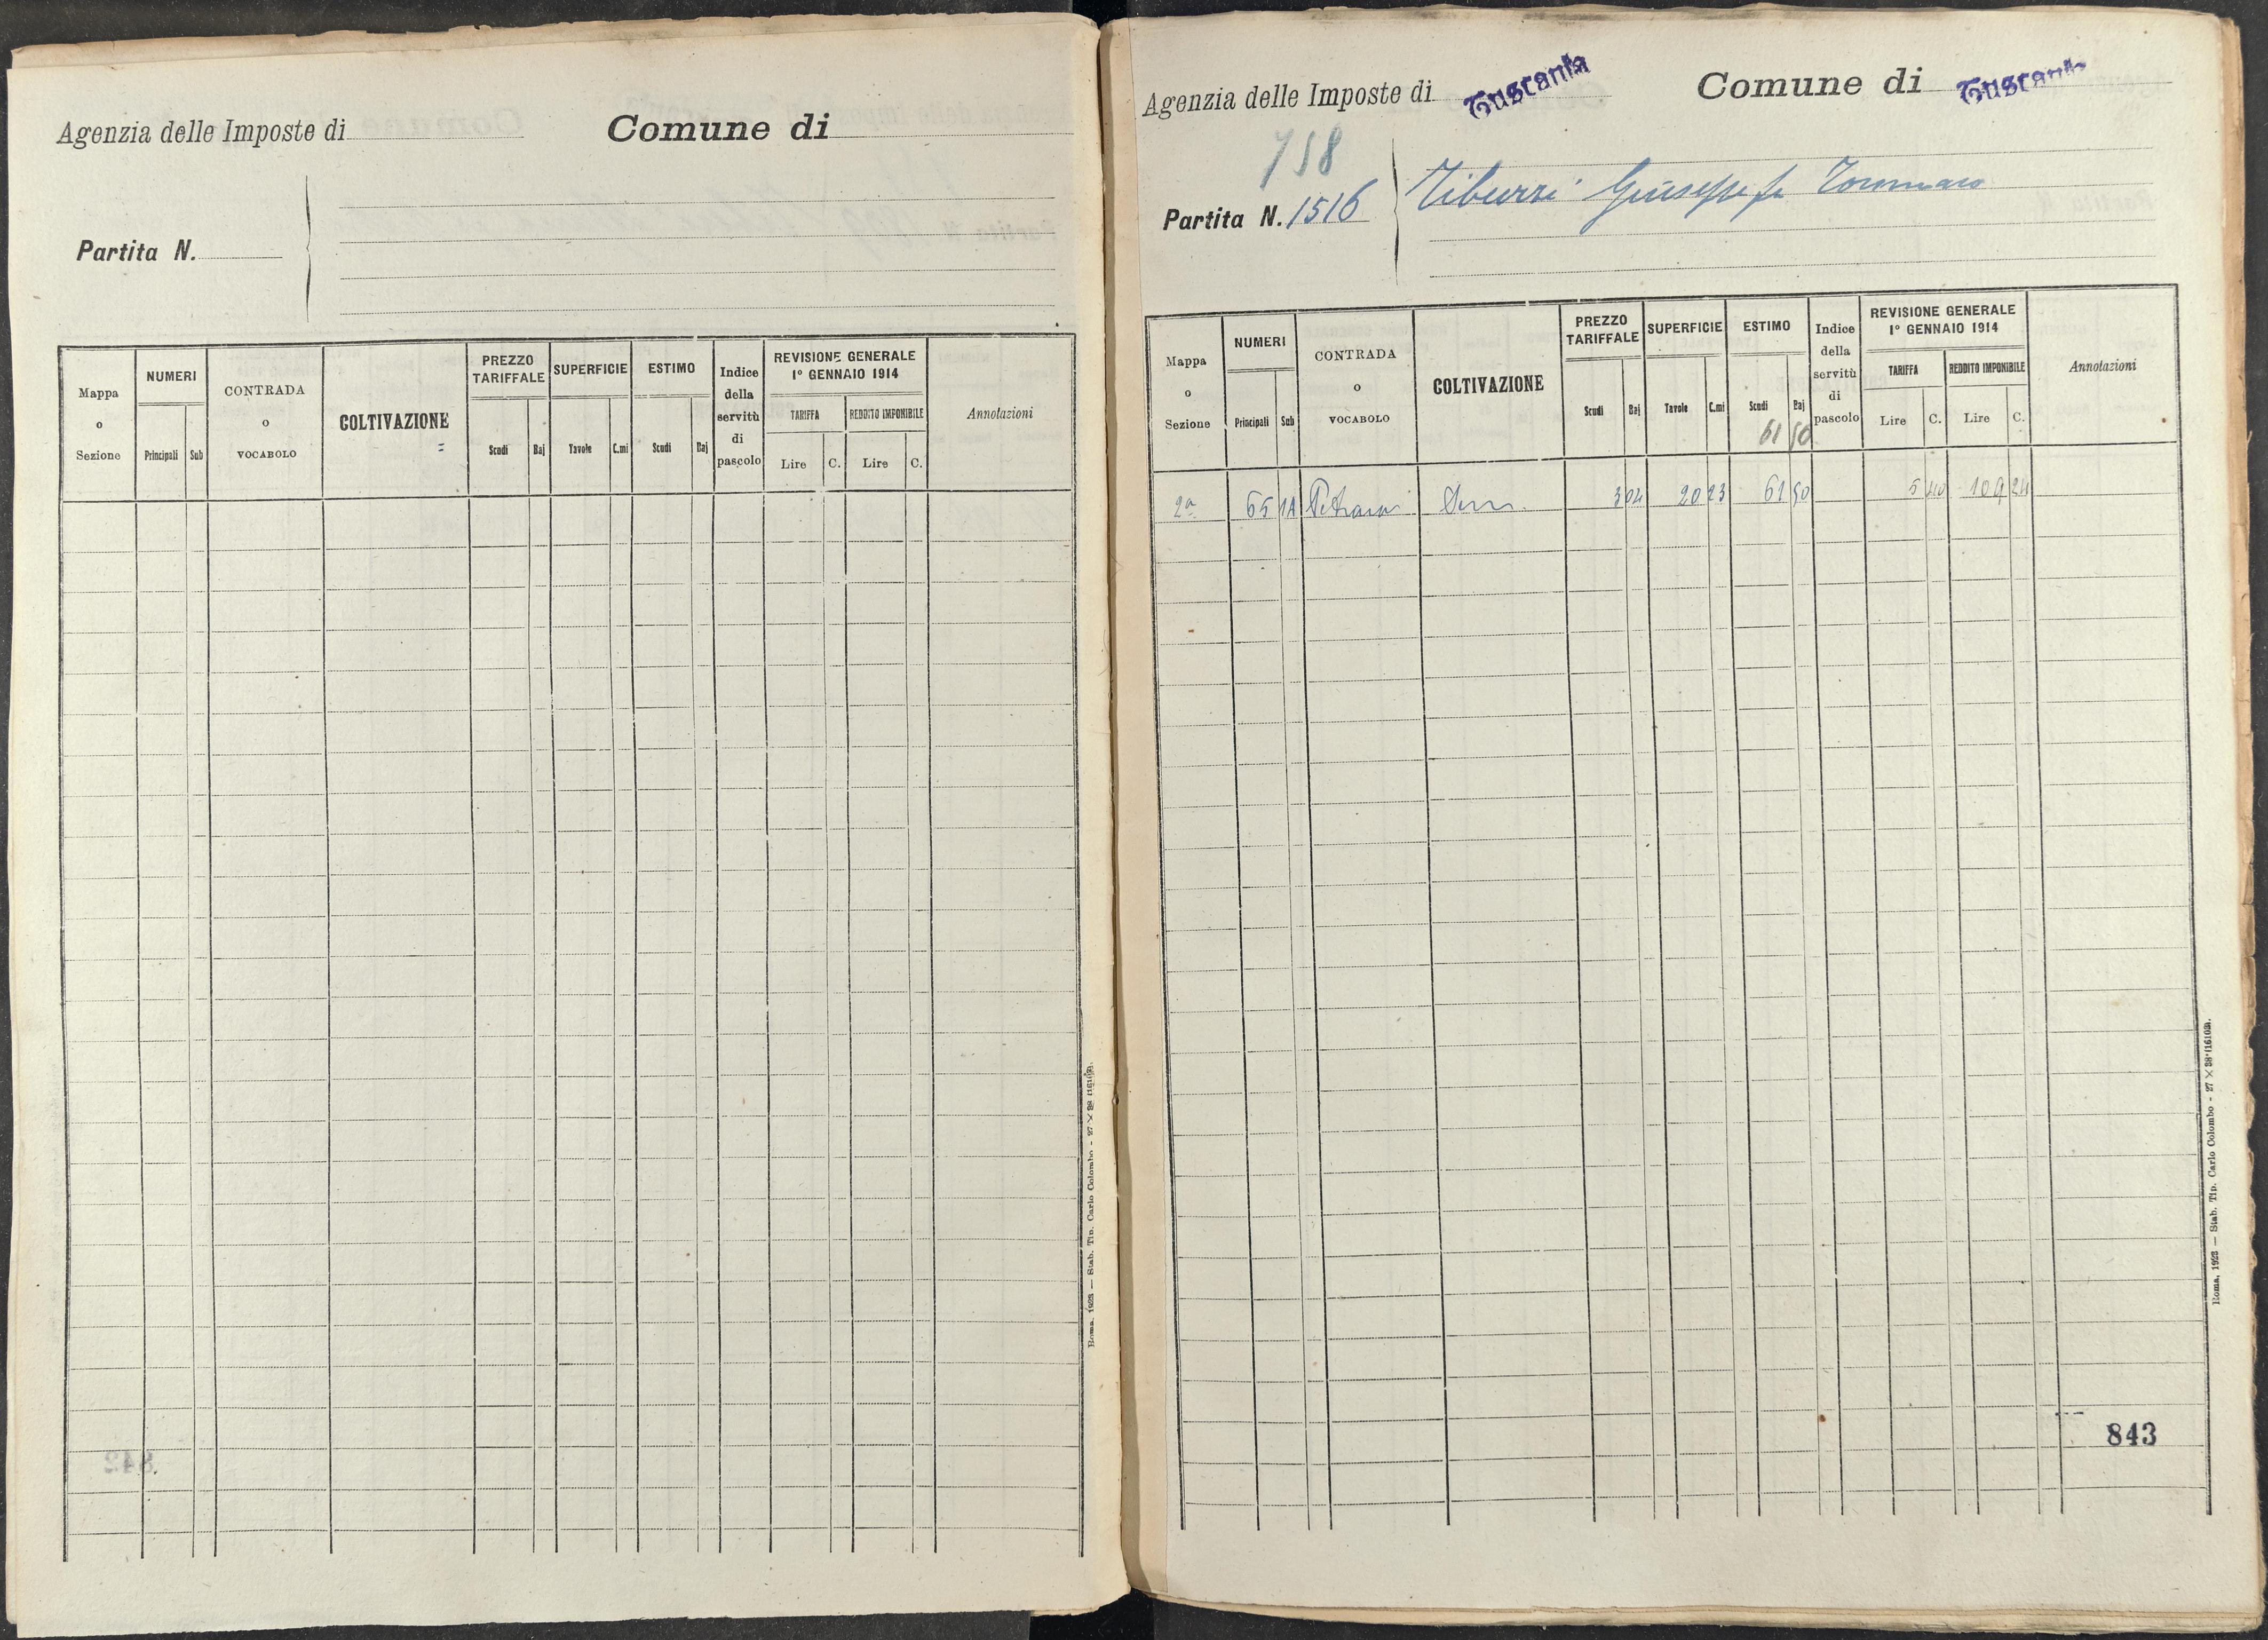 Agenzia delle Imposte di
Comune di
Partita N.
Mappa o Sezione
NUMERI
Principali
Sub
CONTRADA o VOCABOLO
COLTIVAZIONE
PREZZO TARIFFALE
Scudi
Baj
SUPERFICIE
Tavole
C.mi
ESTIMO
Scudi
Baj
Indice della servitù di pascolo
REVISIONE GENERALE 1° GENNAIO 1914
TARIFFA
REDDITO IMPONIBILE
Lire
C.
Lire
C.
Annotazioni
Roma, 1923 — Stab. Tip. Carlo Colombo - 27 × 38
Agenzia delle Imposte di Tuscania
Comune di Tuscania
758
Partita N. 1516
Tiburzi Giuseppe fu Tommaso
Mappa o Sezione
NUMERI
Principali
Sub
CONTRADA o VOCABOLO
COLTIVAZIONE
PREZZO TARIFFALE
Scudi
Baj
SUPERFICIE
Tavole
C.mi
ESTIMO
Scudi
Baj
61 50
Indice della servitù di pascolo
REVISIONE GENERALE 1° GENNAIO 1914
TARIFFA
REDDITO IMPONIBILE
Lire
C.
Lire
C.
Annotazioni
2ª 65 1A 3 04 20 23 61 50 5 40 109 24
843
Roma, 1923 — Stab. Tip. Carlo Colombo - 27 × 38